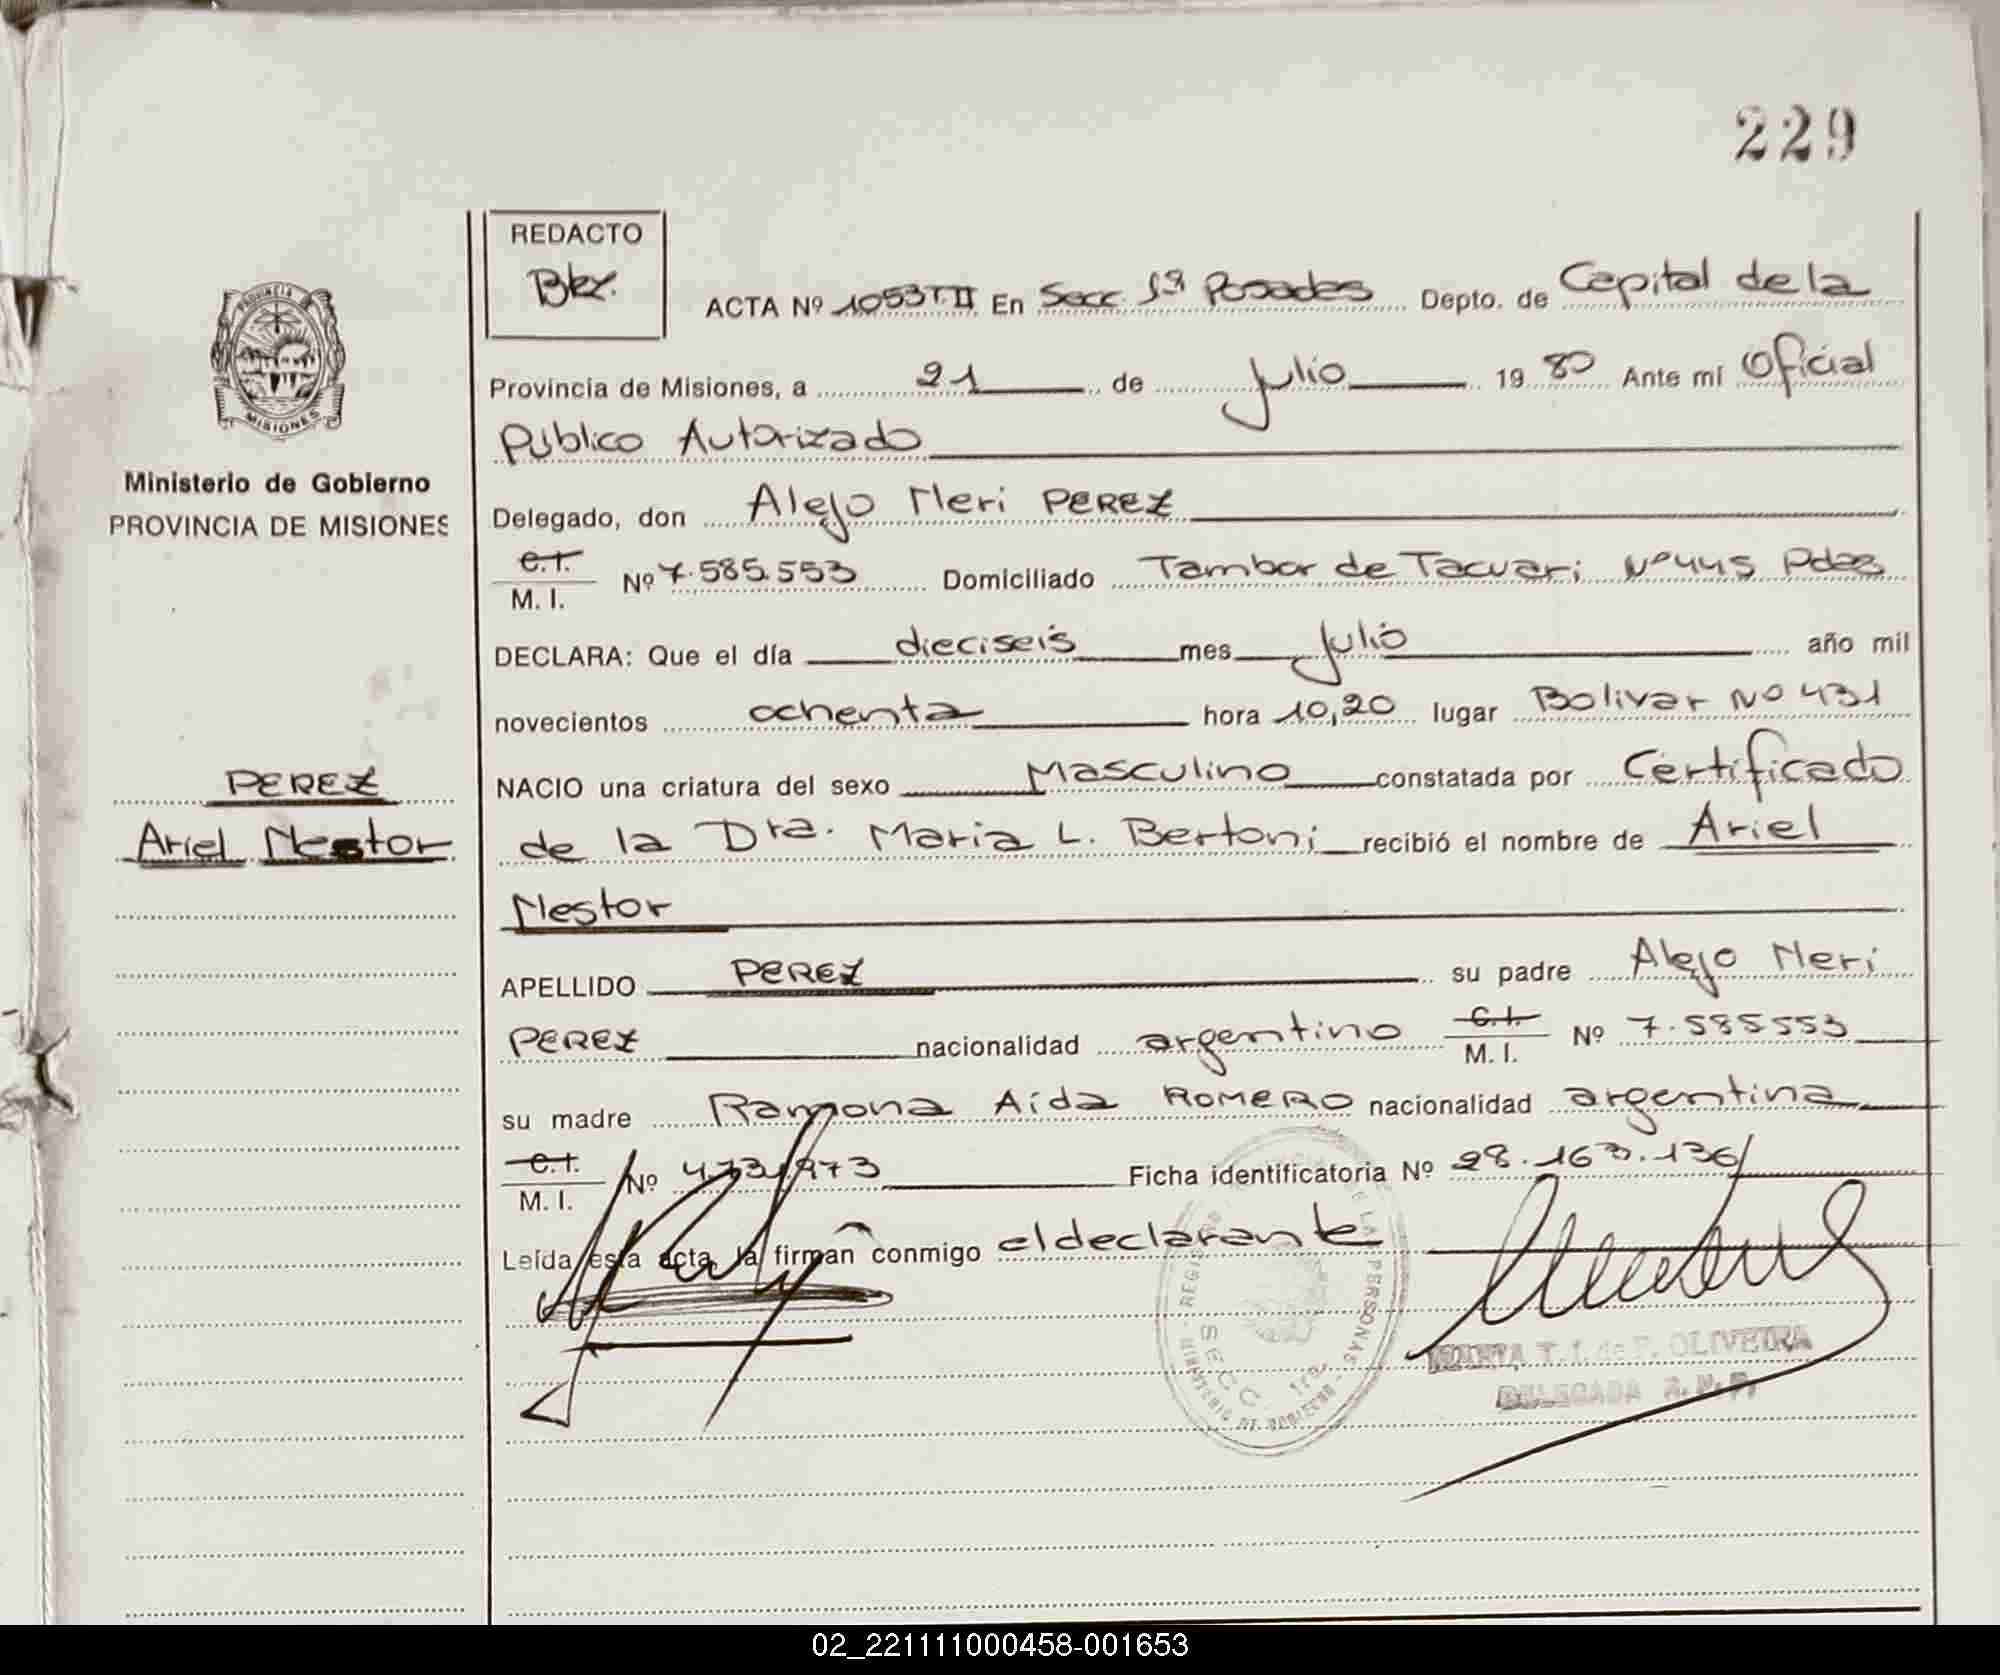 229
REDACTO
Bez.
ACTA Nº 1053 T.II En Secc. 1ª Posadas Depto. de Capital de la
Provincia de Misiones, a 21 de Julio 19 80 Ante mí Oficial
Público Autorizado
PROVINCIA
MISIONES
Ministerio de Gobierno
PROVINCIA DE MISIONES
Delegado, don Alejo Neri PEREZ
C.I.
M. I. Nº 7.585.553 Domiciliado Tambor de Tacuari Nº 445 Pdas
DECLARA: Que el día dieciseis mes Julio año mil
novecientos ochenta hora 10,20 lugar Bolivar Nº 431
NACIO una criatura del sexo Masculino constatada por Certificado
PEREZ
Ariel Nestor
de la Dra. Maria L. Bertoni recibió el nombre de Ariel
Nestor
APELLIDO PEREZ su padre Alejo Neri
PEREZ nacionalidad argentino C.I.
M. I. Nº 7.585553
su madre Ramona Aída ROMERO nacionalidad argentina
C.I.
M. I. Nº Ficha identificatoria Nº 28.163.136
Leída esta acta, la firman conmigo el declarante
REGISTRO DE LAS PERSONAS
MINISTERIO DE GOBIERNO
SECC 1ra.
MARTA T. I. de F. OLIVEIRA
DELEGADA R. N. P.
02_221111000458-001653